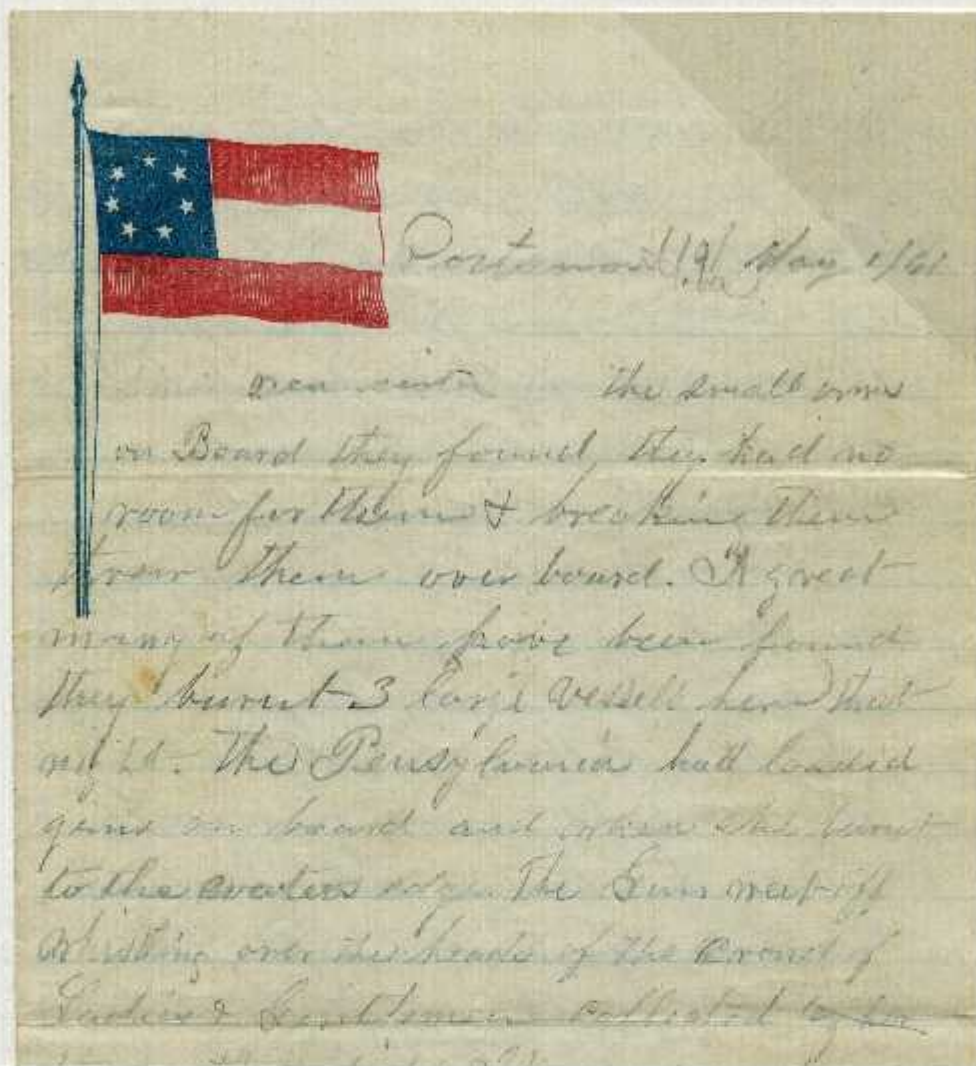 May 1/61
the small arms
on Board they found, they had no
room for them & breaking them
threw them over board. A great
many of them have been found
they burnt 3 large Vessels here that
night. The Pensylvania had loaded
guns on board and when she burnt
to the waters edge The Guns went off
Whistling over the heads of the Croud of
Ladies & Gentlemen collected